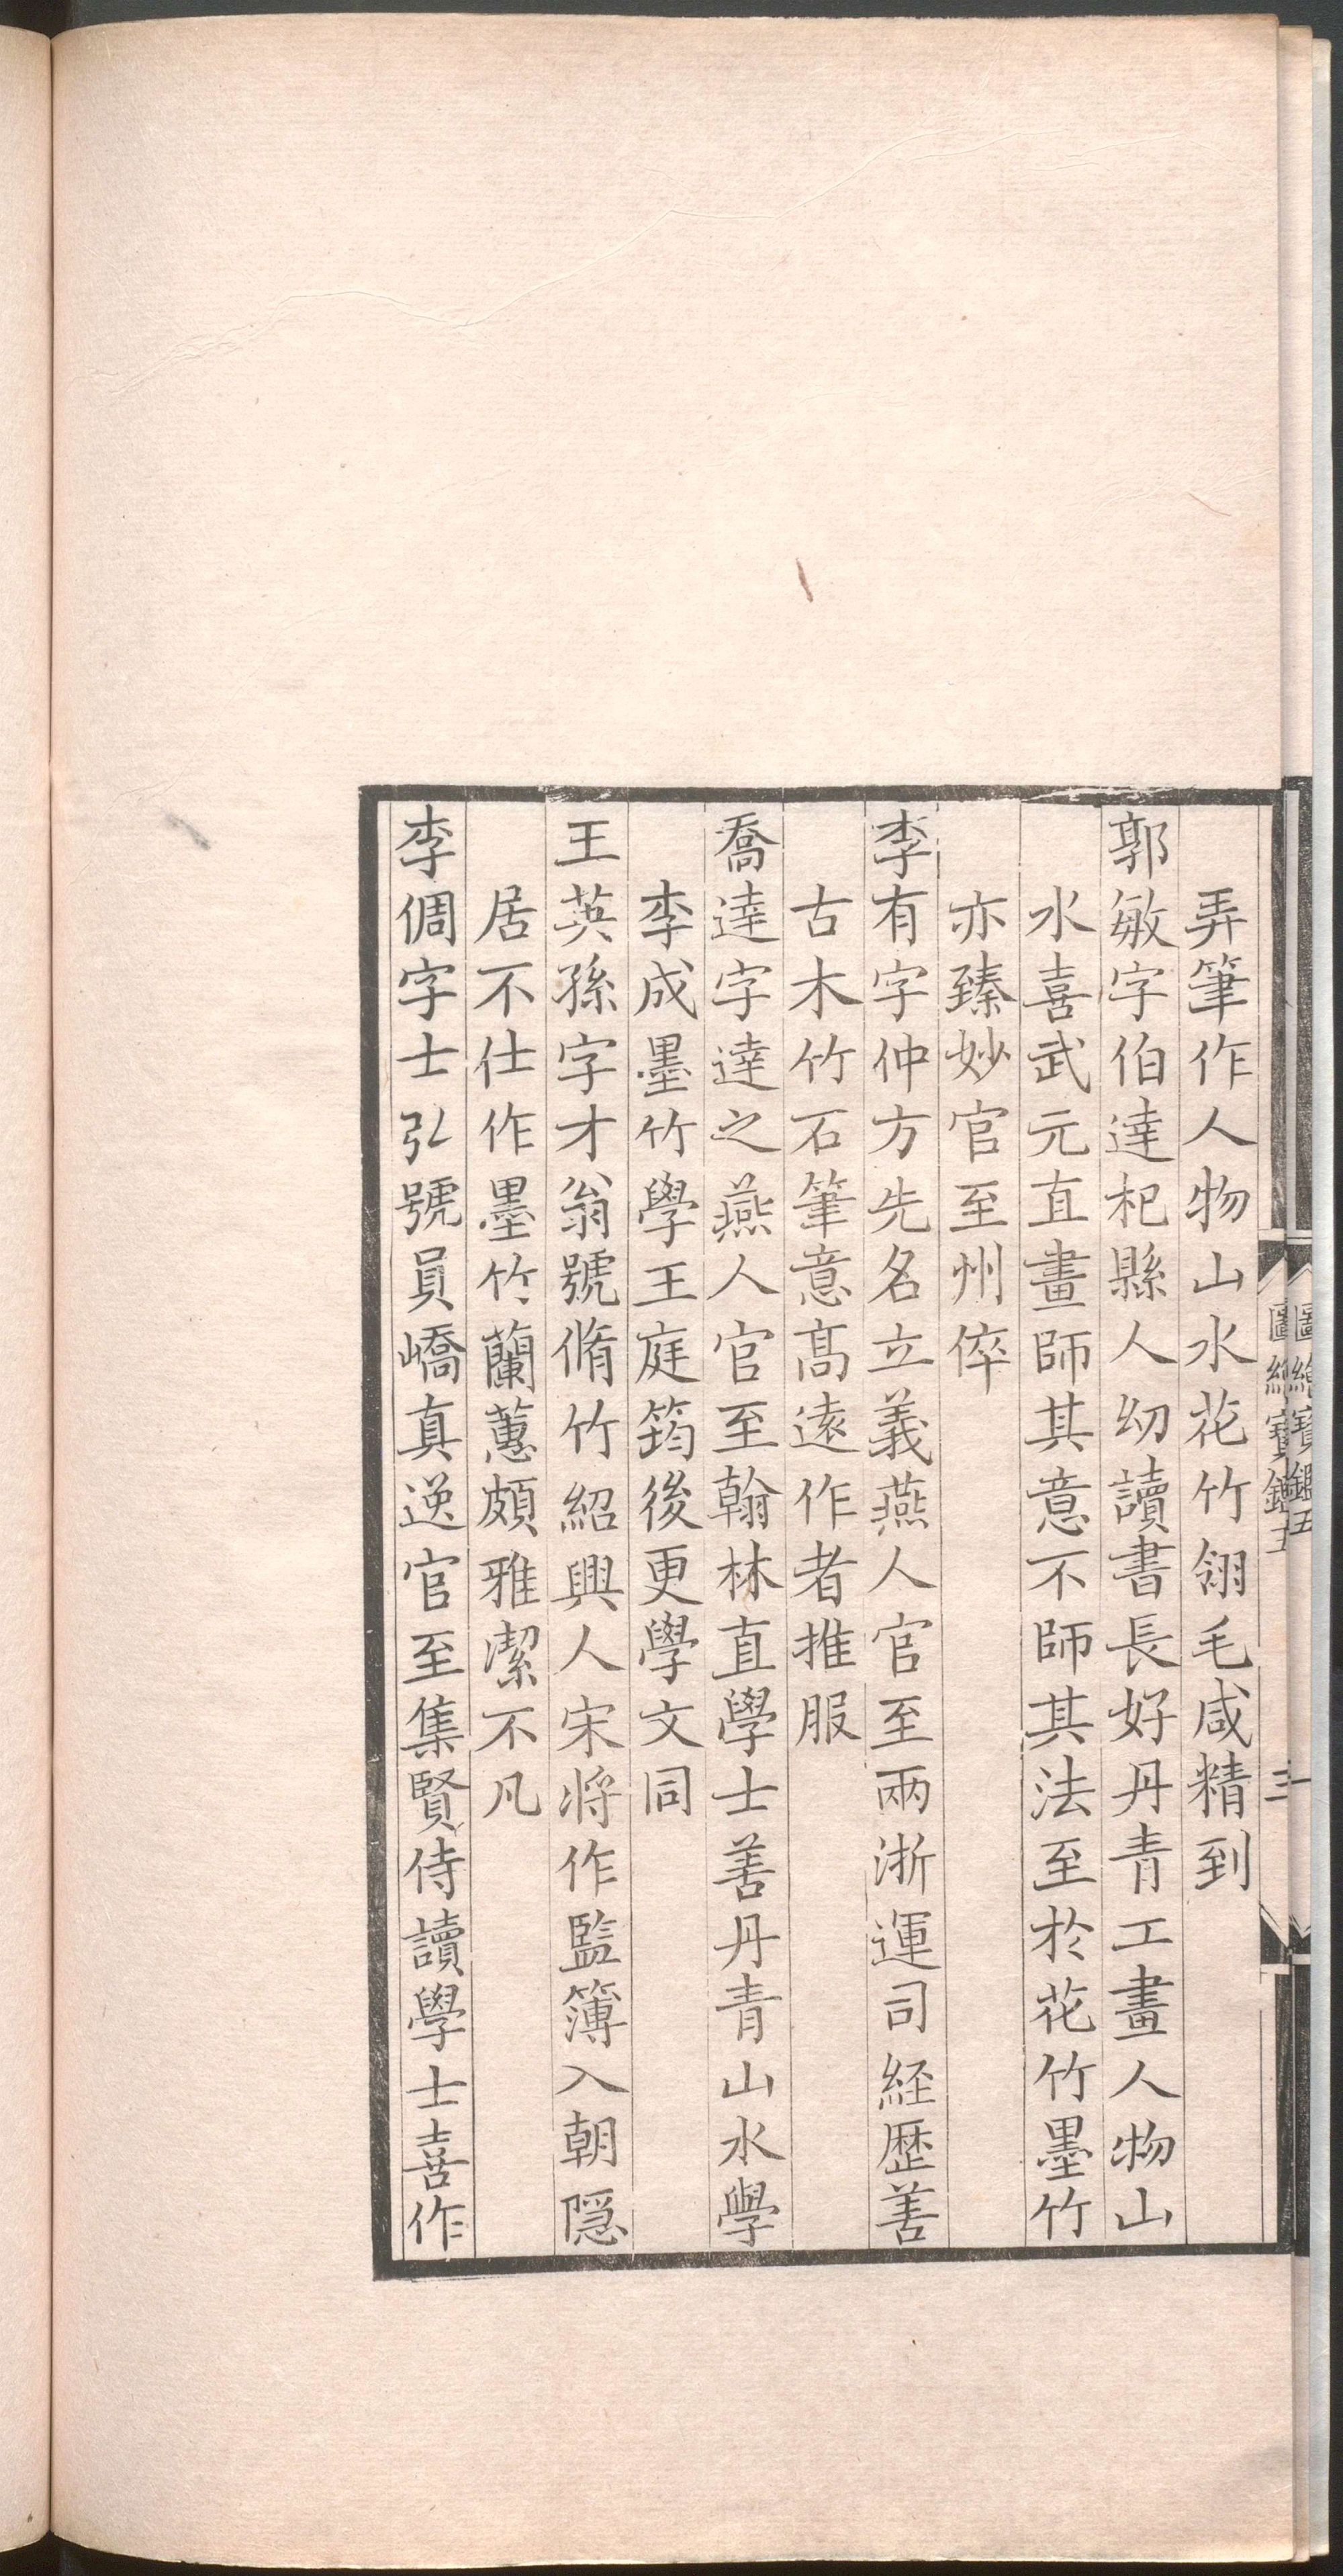 弄筆作人物山水花竹翎毛咸精到
郭敏字伯達杞縣人幼讀書長好丹青工畫人物山
水喜武元直畫師其意不師其法至於花竹墨竹
亦臻妙官至州倅
李有字仲方先名立義燕人官至兩浙運司経歴善
古木竹石筆意髙遠作者推服
喬達字達之燕人官至翰林直學士善丹青山水學
李成墨竹學王庭筠後更學文同
王英孫字才翁號脩竹紹興人宋将作監簿入朝隠
居不仕作墨竹蘭蕙頗雅潔不凡
李倜字士弘號員嶠真逸官至集賢侍讀學士喜作